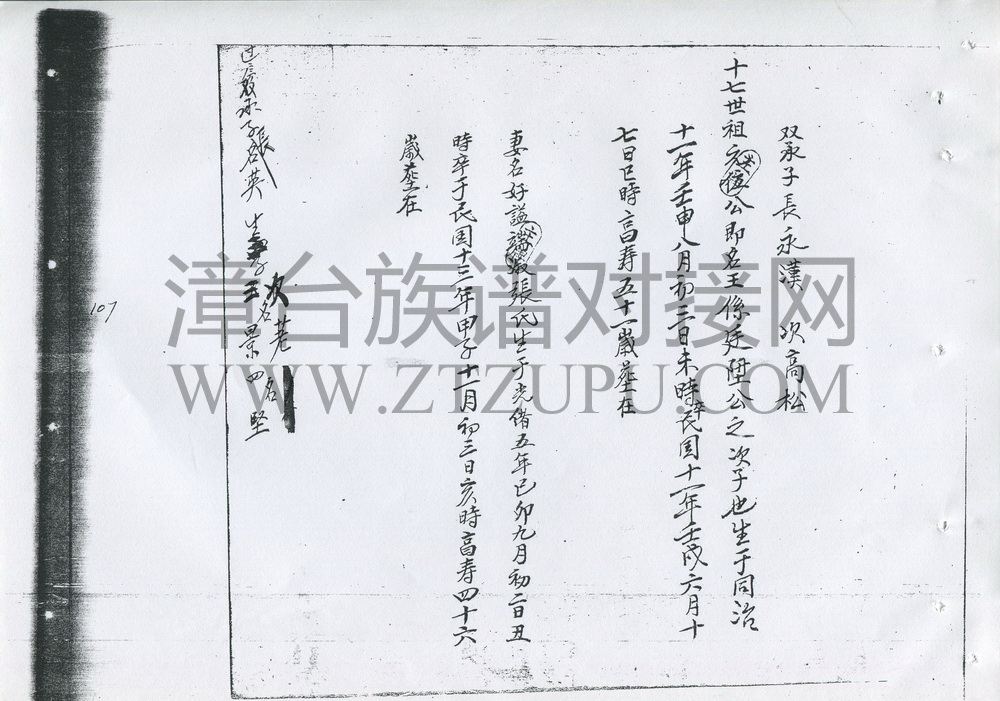 双承子長永漢 次高松
十七世祖元位公即名王係廷陞公之次子也生于同治
十一年壬申八月初三日未時卒民国十一年壬戌六月十
七日巳時高寿五十一歲塟在
妻名好謚端淑張氏生于光緒五年己卯九月初二日丑
時卒于民国十三年甲子十一月初三日亥時高寿四十六
歲塟在
承子張名英 生子次名荖
三名景 四名坚
107
漳台族谱对接网
WWW.ZTZUPU.COM